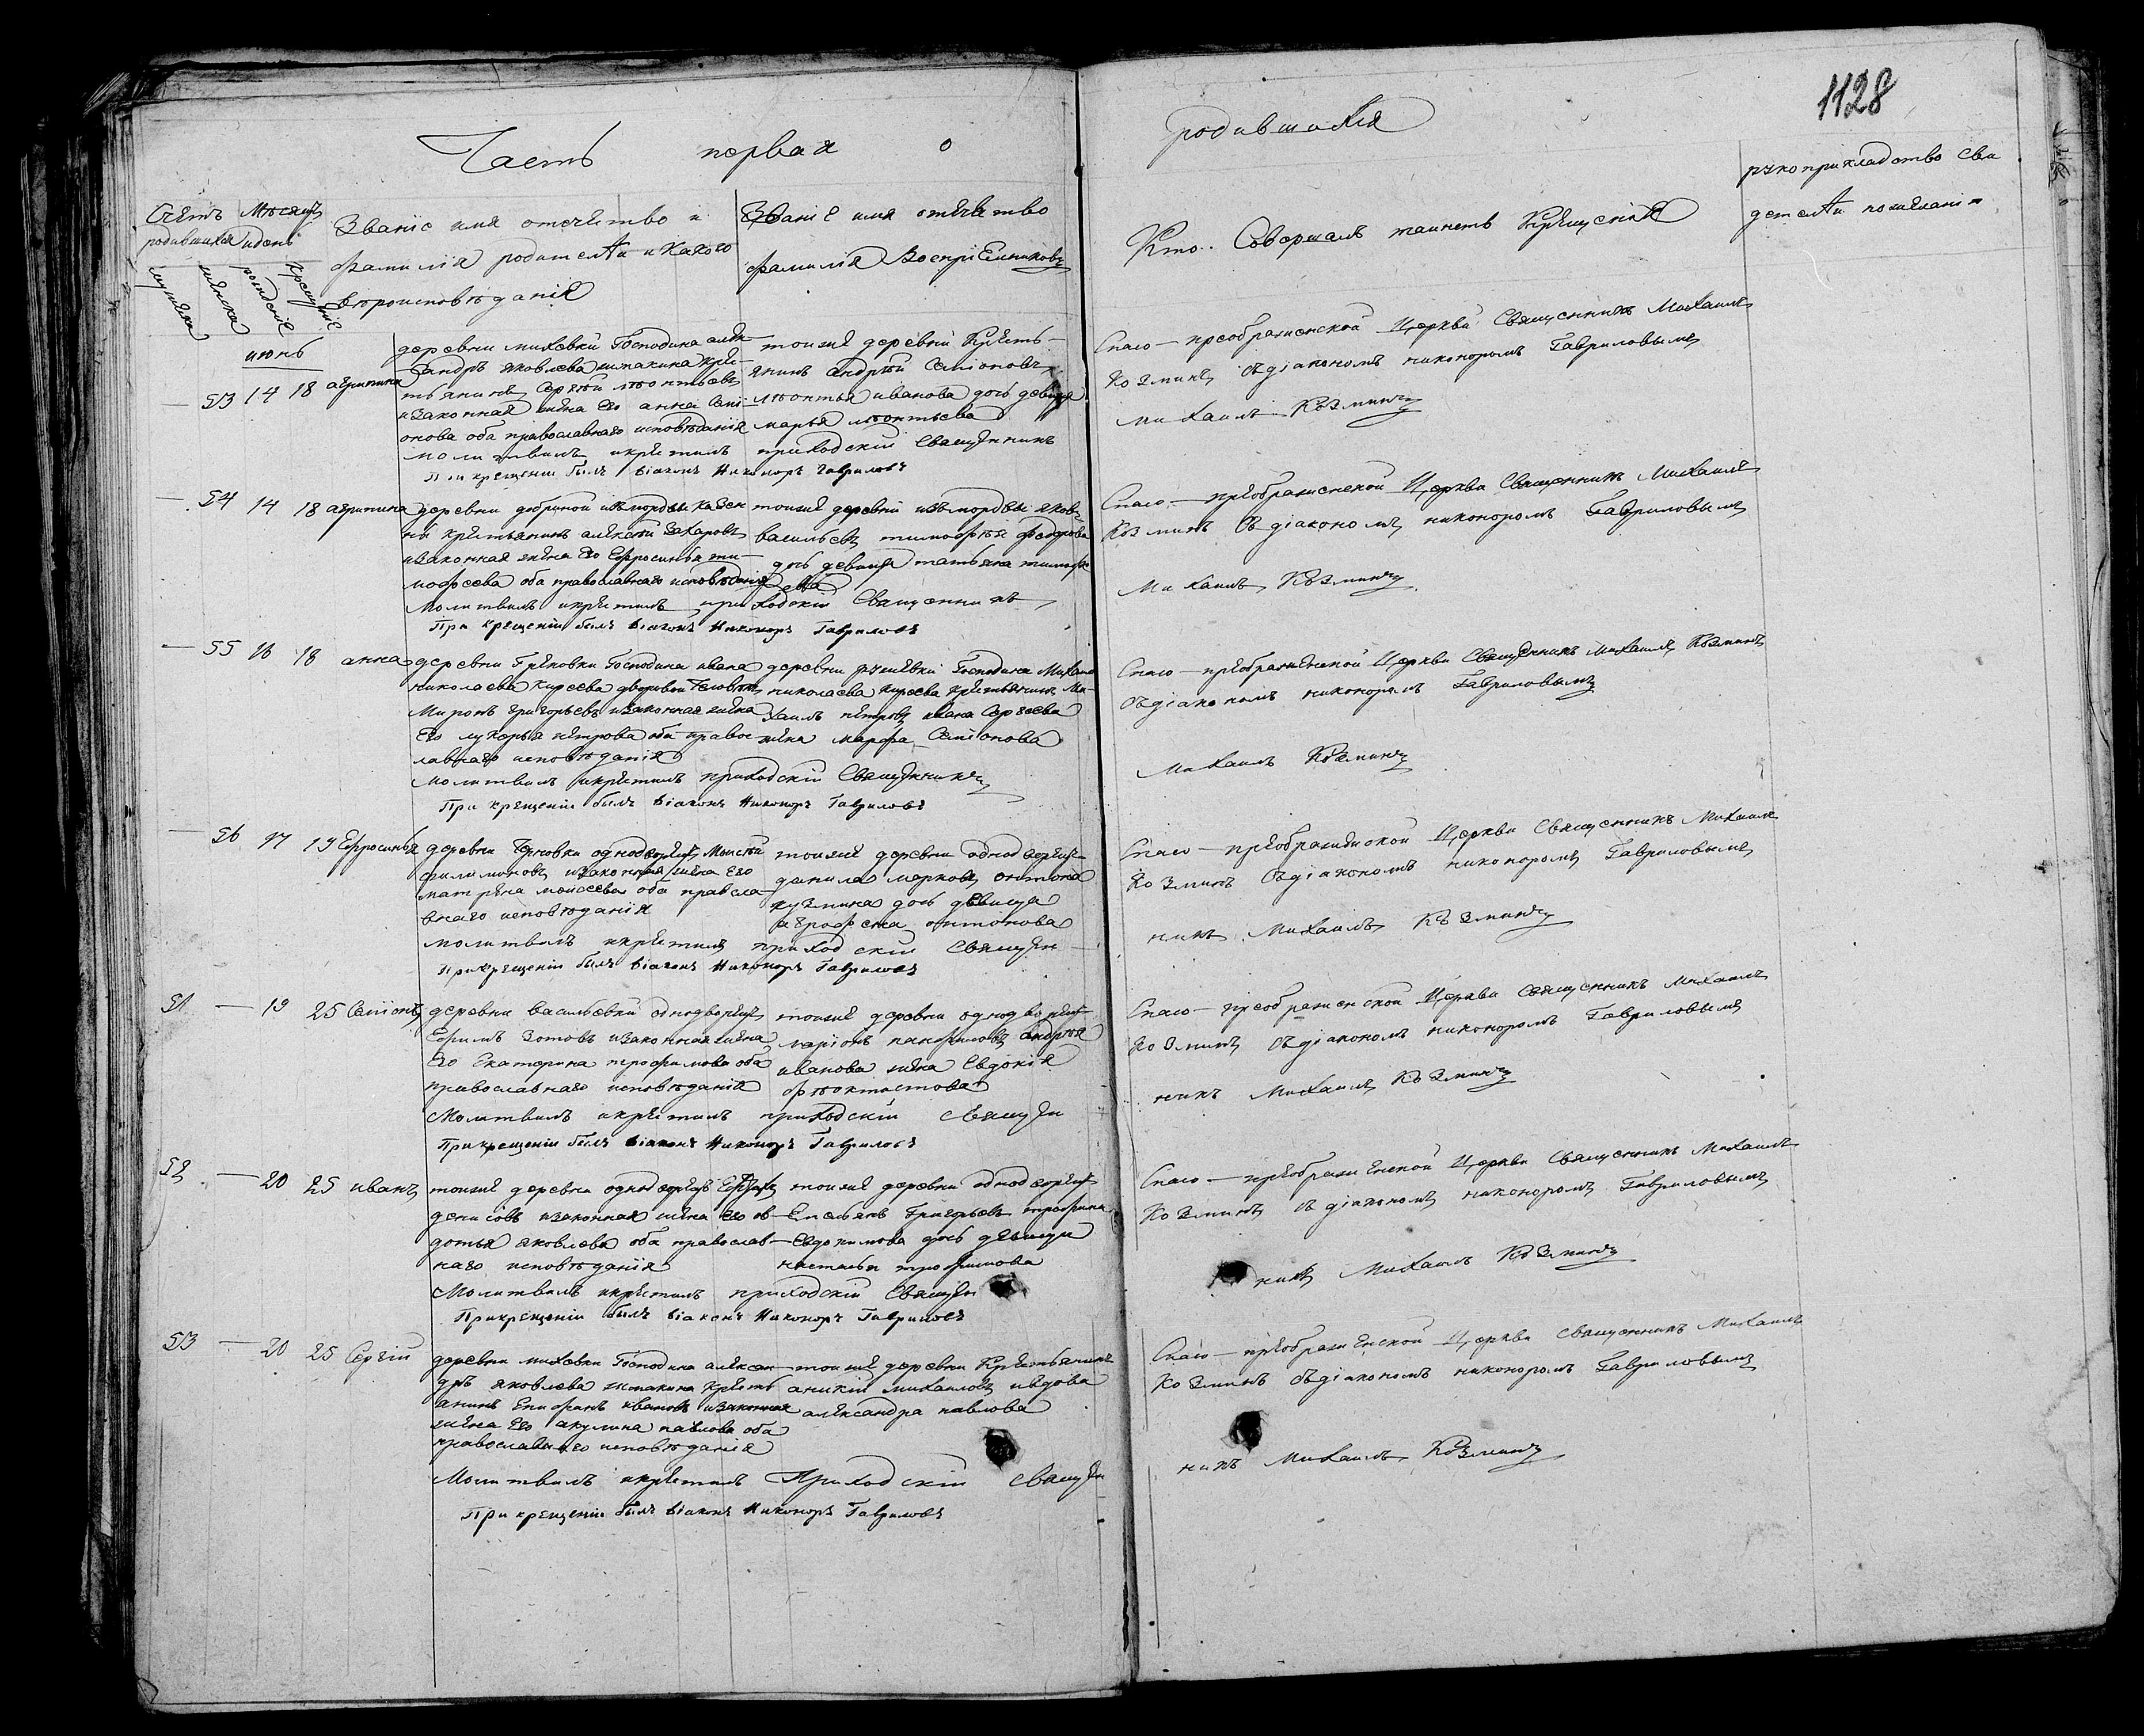 1128
Часть первая о родившихся
Счетъ родившихся
Месяцъ и день
Званiе имя отечество и
фамилiя родителей и какого
вероисповеданiя
Званiе имя отечество
фамилiя Воспрiемниковъ
Кто Совершалъ таинство Крещенiя
рукоприкладство сви
детелей по желанiю
мужеска
женска
рожденiе
крещенiе
июнь
53 14 18 агрипина
деревни михевки Господина алек
сандръ яковлева крес
тьянинъ Сергей леонтьевъ
и законная жена Его анна Семi
онова оба православнаго исповеданiя
молитвилъ и крестилъ приходскiй Священникъ
При крещенiи былъ дiаконъ Никоноръ Гавриловъ
тойже деревни Кресть
янинъ андрей Семiоновъ
леонтья иванова дочь девица
марья леонтьева
Спасо-преображенской Церкви Священникъ Михаилъ
Козминъ съ дiакономъ никоноромъ Гавриловымъ
михаилъ Козминъ
54 14 18 агрипина
деревни добриной изъ мордвы казен
ный крестьянинъ алексей Захаровъ
и законная жена Его Ефросинья ти
мофеева оба православнаго исповеданiя
Молитвилъ и крестилъ приходскiй Священникъ
При крещенiи былъ дiаконъ Никоноръ Гавриловъ
тойже деревни изъ мордвы яковъ
васильевъ тимофея федорова
дочь девица татьяна тимофе
ева
Спасо-преображенской Церкви Священникъ Михаилъ
Козминъ съ дiакономъ никоноромъ Гавриловымъ
Михаилъ Козминъ
55 16 18 анна
деревни Господина ивана
николаева Киреева дворовой человекъ
Миронъ григорьевъ и законная жена
Его лукерья петрова оба правос
лавнаго исповеданiя
молитвилъ и крестилъ приходскiй Священникъ
При крещенiи былъ дiаконъ Никоноръ Гавриловъ
деревни Господина Михаила
николаева киреева крестьянинъ Ми
хаилъ петровъ ивана Сергеева
жена марфа Семiонова
Спасо-преображенской Церкви Священникъ михаилъ Козминъ
съ дiакономъ никоноромъ Гавриловымъ
Михаилъ Козминъ
56 17 19 Ефросинья
деревни однодворецъ Моисей
филимоновъ и законная жена Его
матрена моисеева оба правосла
внаго исповеданiя
молитвилъ и крестилъ приходскiй Священ
При крещенiи былъ дiаконъ Никоноръ Гавриловъ
тойже деревни однодворецъ
данила марковъ антона
кузмина дочь девица
аграфена антонова
Спасо-преображенской Церкви Священникъ Михаилъ
Козминъ съ дiакономъ никоноромъ Гавриловымъ
никъ Михаилъ Козминъ
51 19 25 Семiонъ
деревни васильевки однодворецъ
Ефимъ Зотовъ и законная жена
Его Екатерина трофимова оба
православнаго исповеданiя
Молитвилъ и крестилъ приходскiй Священ
При крещенiи былъ дiаконъ Никоноръ Гавриловъ
тойже деревни однодворецъ
ларiонъ панфиловъ андрея
иванова жена Евдокiя
феоктистова
Спасо-преображенской Церкви Священникъ Михаилъ
Козминъ съ дiакономъ никоноромъ Гавриловымъ
никъ Михаилъ Козминъ
52 20 25 иванъ
тойже деревни однодворецъ
денисовъ и законная жена Его ов
дотья яковлева оба православ
наго исповеданiя
Молитвилъ и крестилъ приходскiй Священ
При крещенiи былъ дiаконъ Никоноръ Гавриловъ
тойже деревни однодворецъ
Емельянъ Григорьевъ трофима
Евдокимова дочь девица
настасья трофимова
Спасо-преображенской Церкви Священникъ Михаилъ
Козминъ съ дiакономъ никоноромъ Гавриловымъ
никъ Михаилъ Козминъ
53 20 25 Сергiй
деревни михевки Господина алексан
дръ яковлева кресть
янинъ Епифанъ ивановъ и законная
жена Его акулина павлова оба
православнаго исповеданiя
Молитвилъ и крестилъ Приходскiй Священ
При крещенiи былъ дiаконъ Никоноръ Гавриловъ
тойже деревни Крестьянинъ
аникiй михаиловъ вдова
александра павлова
Спасо-преображенской Церкви священникъ Михаилъ
Козминъ съ дiакономъ никоноромъ Гавриловымъ
никъ Михаилъ Козминъ